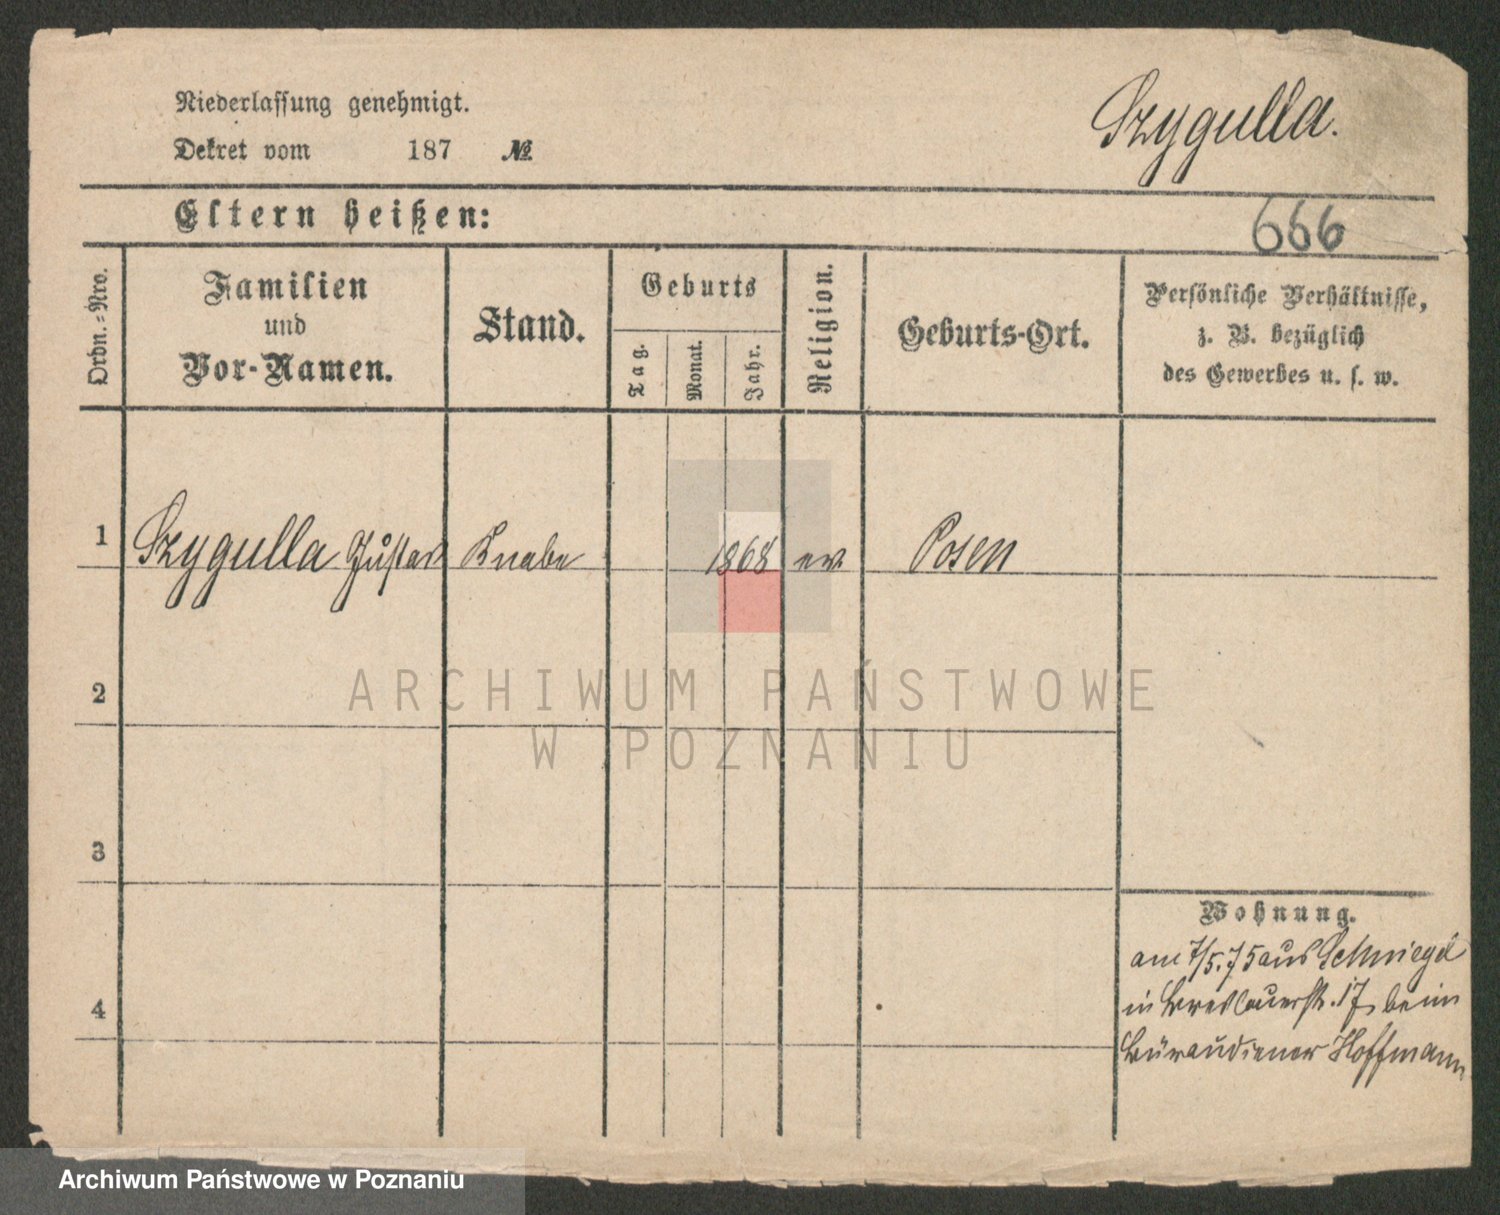 Niederlassung genehmigt.
Dekret vom 187 №
Szygulla.
Eltern heißen:
666
Ordn.-Nro.
Familien
und
Vor-Namen.
Stand.
Geburts
Tag.
Monat.
Jahr.
Religion.
Geburts-Ort.
Persönliche Verhältnisse,
z. B. bezüglich
des Gewerbes u. s. w.
1 Szygulla Gustav Knabe 1868 ev Posen
2
3
4
ARCHIWUM PAŃSTWOWE
W POZNANIU
Wohnung.
am 7/5.75 aus Schmiegel
in Breslauerstr. 17, beim
Büraudiener Hoffmann
Archiwum Państwowe w Poznaniu